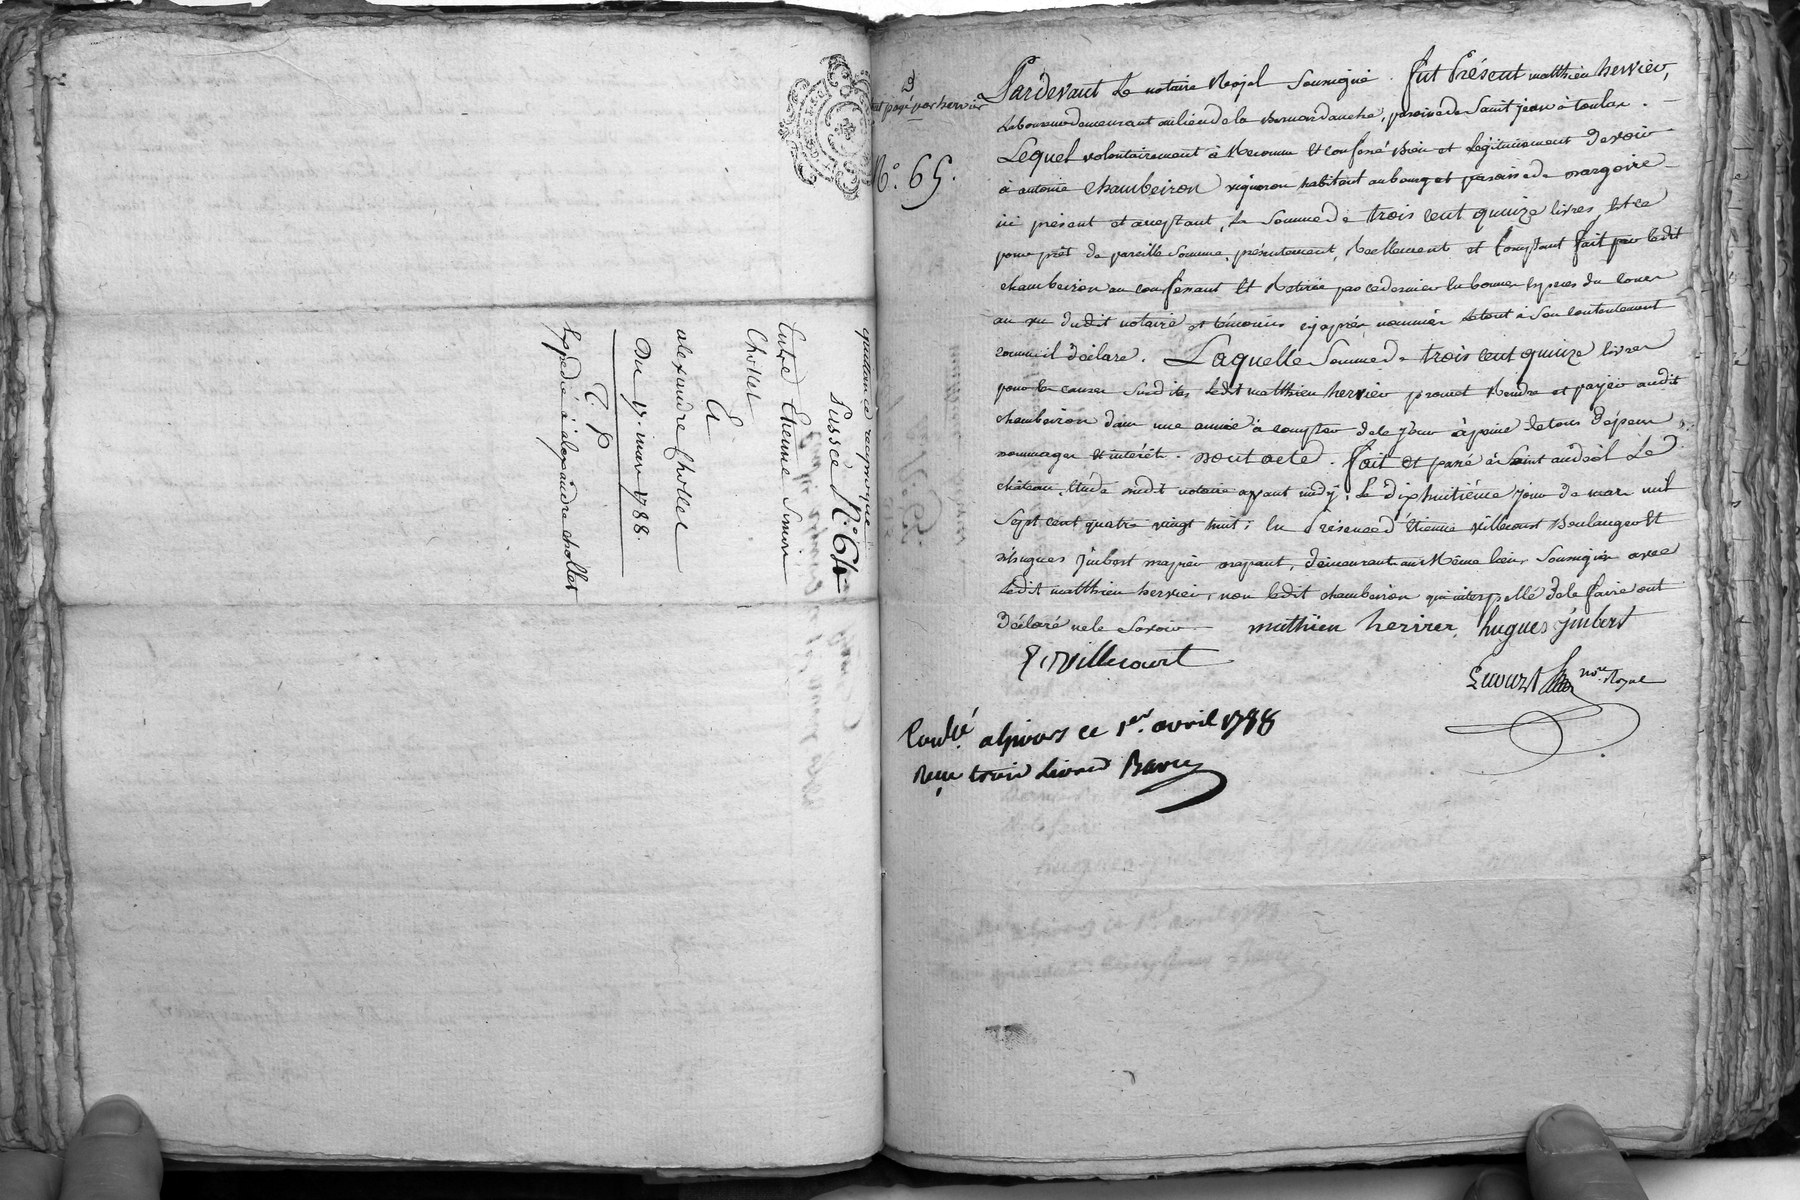 quittance reciproque
passée N.º 64
Entre Etienne Simon
Chollet
Et
alexandre chollet
Du 17. mars 1788.
T. P
Expediée à alexandre chollet
est payé par hervier
N.º 65.
Pardevant Le notaire Royal Soussigné. fut Présent matthieu hervier,
Laboureur demeurant au lieu de la , paroisse de Saint jean à toulas.
Lequel volontairement à Reconnu Et confessé Bien et Légitimement devoir
à antoine Chambeiron vigneron habitant au bourg et paroisse de
ici présent et acceptant, La Somme de trois cent quinze livres, Et ce
pour prêt de pareille Somme, présentement, Reellement et Comptant fait par ledit
chambeiron au confessant Et Retirée par ce dernier En bonnes Espèces du Cours
au vu dudit notaire et témoins cy après nommés Le tout à Son Contentement
comme il déclare. Laquelle Somme de trois cent quinze livres
pour les causes Susdites, Ledit matthieu hervier promet Rendre et payer audit
chambeiron dans une année à compter de ce jour à peine de tous dépens
dommages Et intérêts. Dont acte. fait et passé à Saint andéol Le
château, Etude dudit notaire avant midy, Le dix huitième jour de mars mil
Sept cent quatre vingt huit; En Présence d'Etienne villecourt Boulanger Et
d'hugues jimbert , demeurants au Même lieu, Soussignés avec
Ledit matthieu hervier, non Ledit chambeiron qui interpellé de le faire ont
Déclaré ne le Savoir mathieu hervier, hugues jimbert
E. Villecourt
no.re Royal
Controlé a givors ce 1er. avril 1788
Reçu trois livres